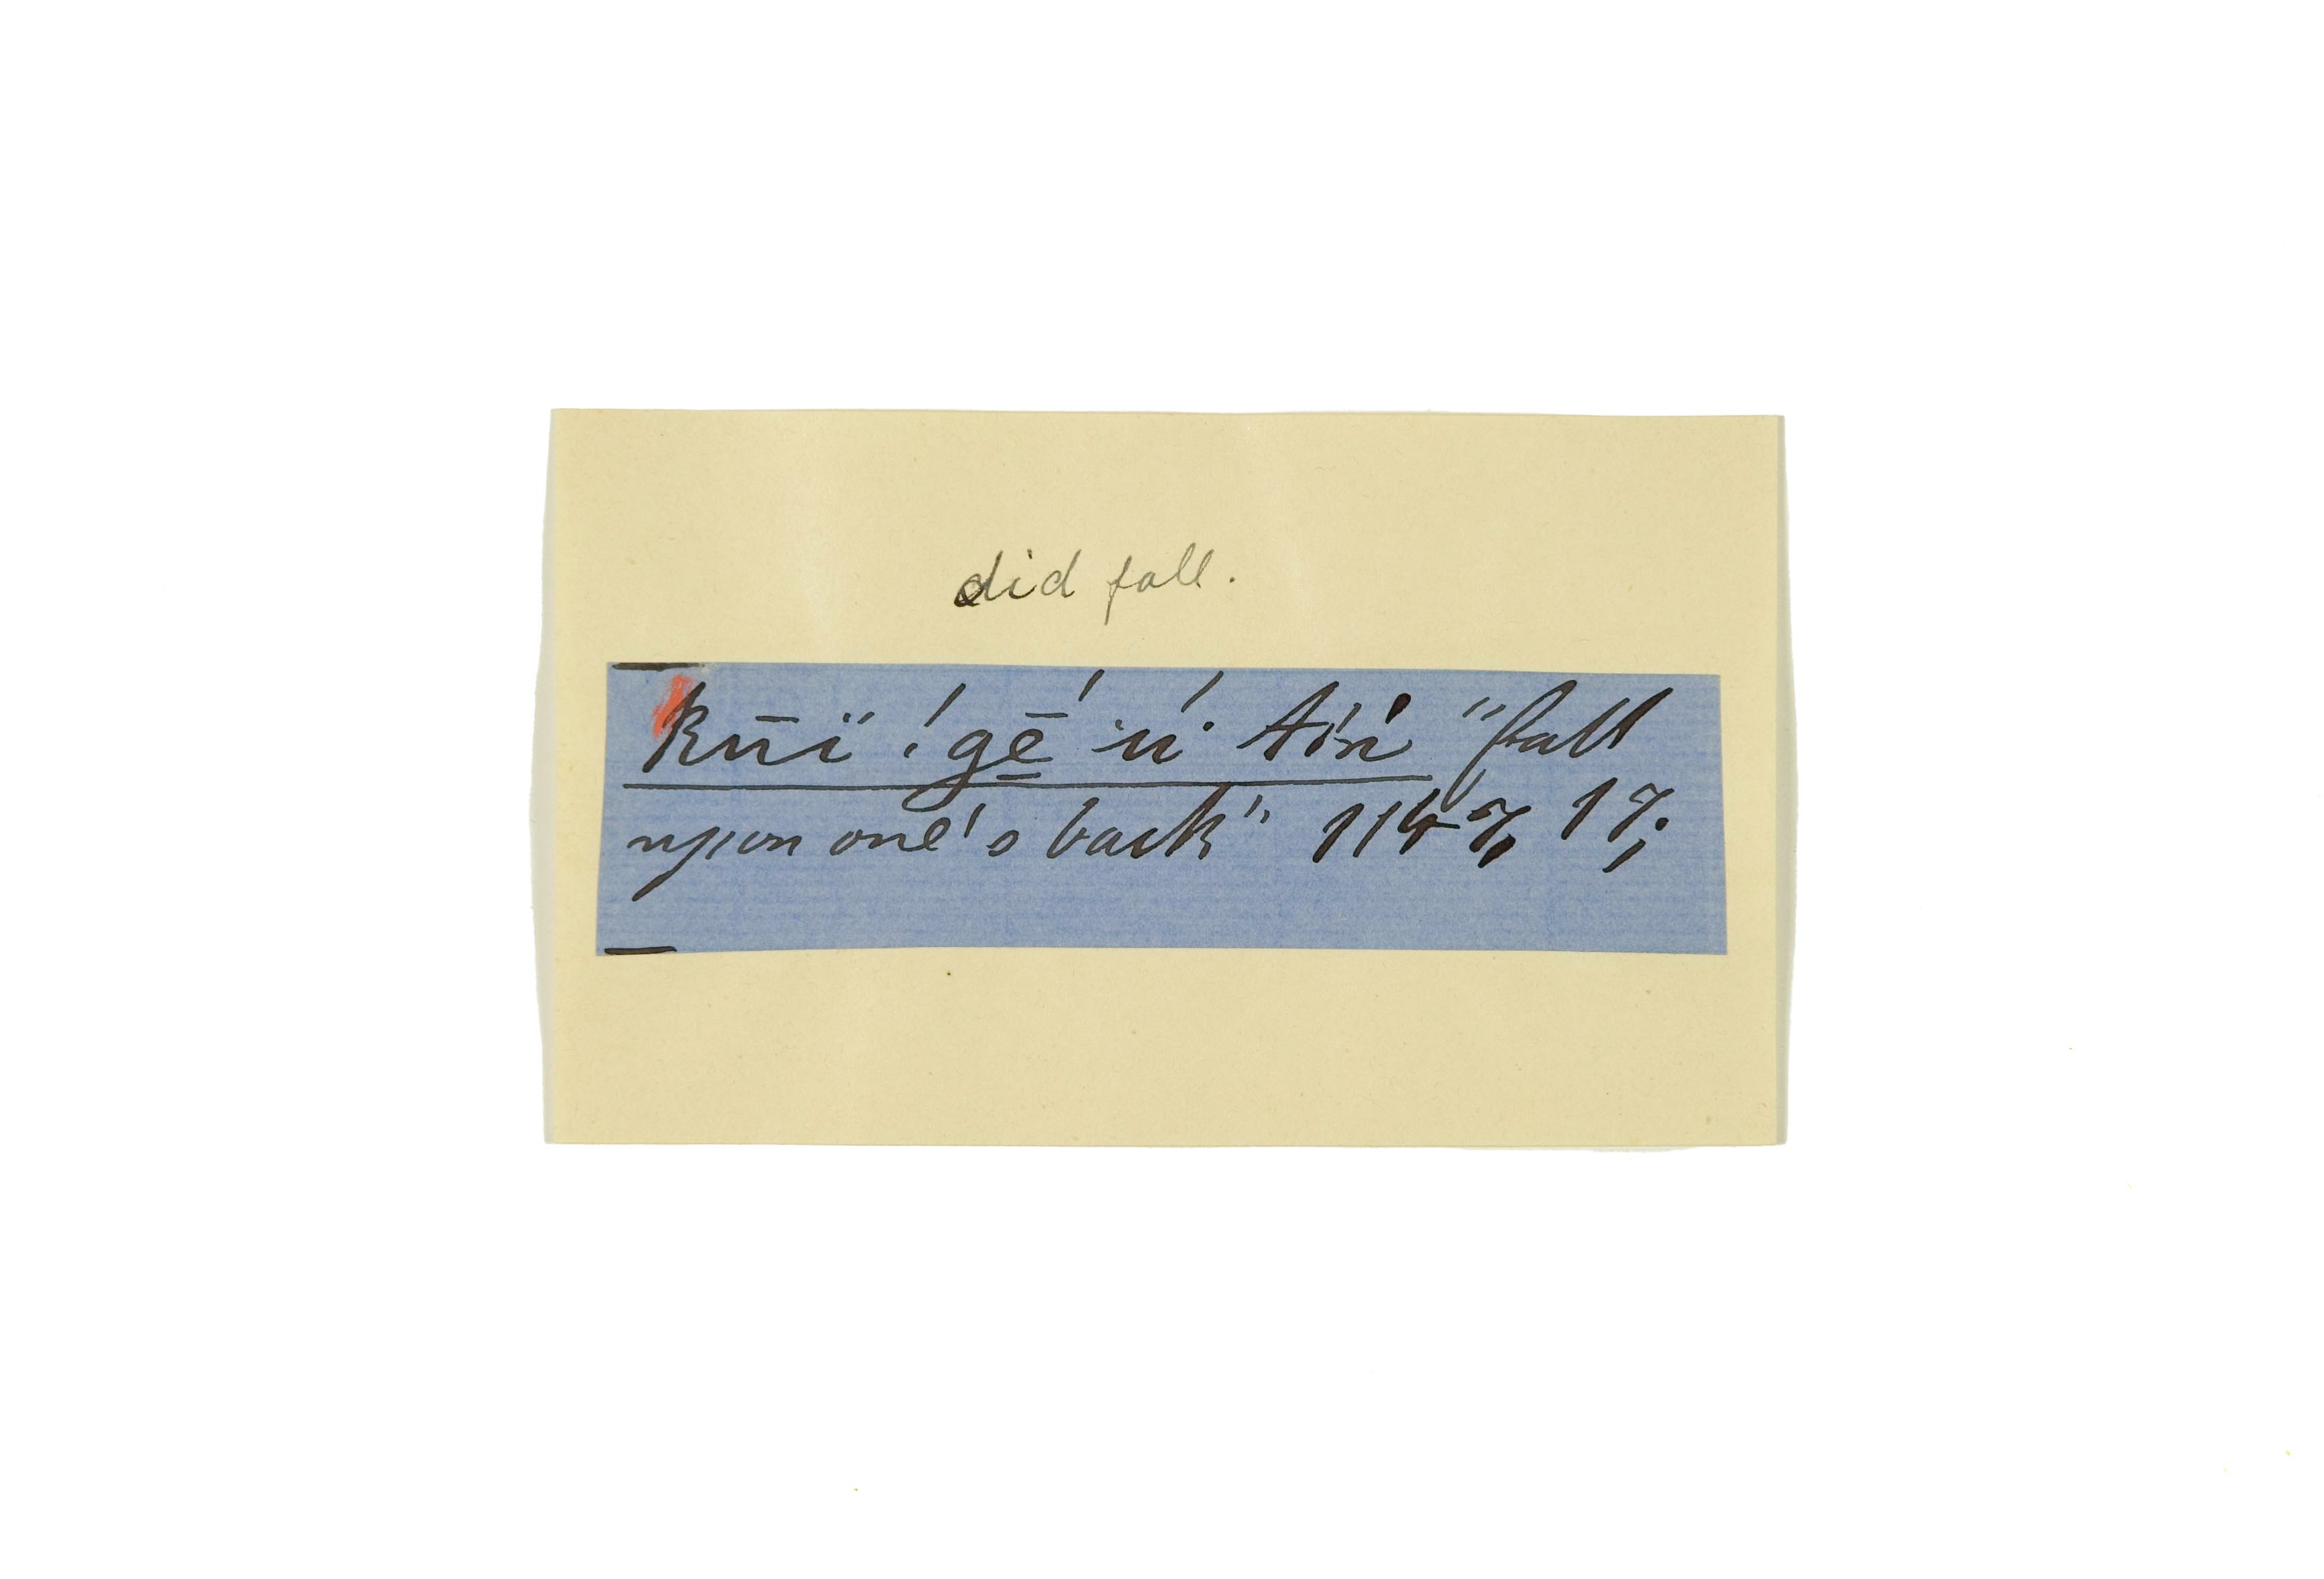 did fall.
kūï !gḗ ú tín "fall
upon one's back" 1147, 17;